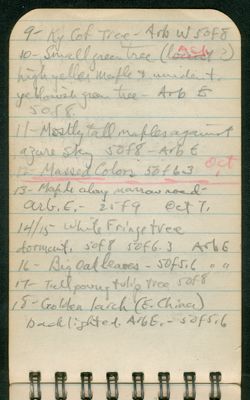 9- Ky Cof Tree - Arb W 50f8
10- Small green tree (locust?)
high yellow maple & unident.
yellowish green tree - Arb E
50f8.
11- Mostly tall maples against
azure sky 50f8 - Arb E
12- Massed Colors 50f6.3 Oct
13- Maple along narrow road-
Arb. E. - 25f9 Oct 7,
14/15- White Fringe tree
dormant. 50f8 50f6.3 Arb E
16- Big Oak leaves - 50f5.6 " "
17- Tall young tulip tree 50f8
18- Golden larch (E. China)
backlighted. Arb E. - 50f5.6